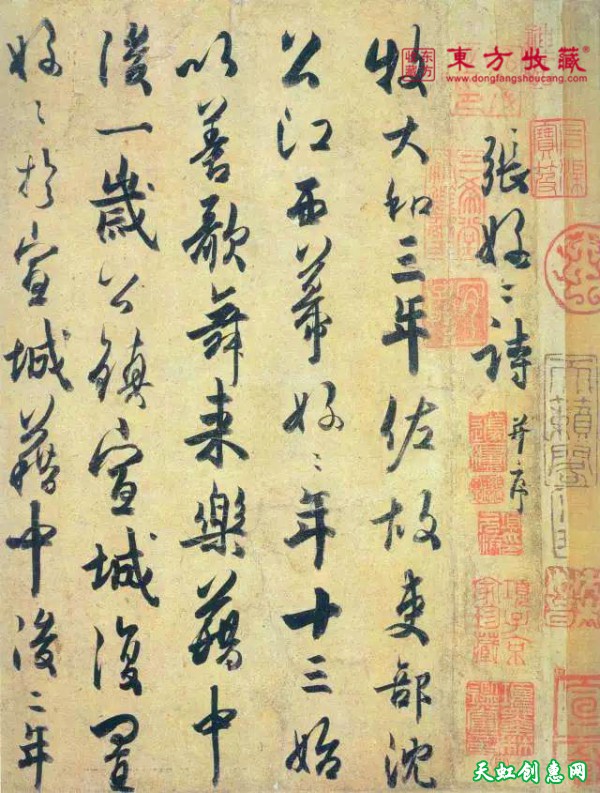 東方收藏®
www.dongfangshoucang.com
張好〻詩 并序
牧大和三年佐故吏部沈
公江西幕好〻年十三始
以善歌舞来樂藉中
後一歲公鎮宣城復置
好〻於宣城藉中後二年
項子京家珍藏
天虹创惠网